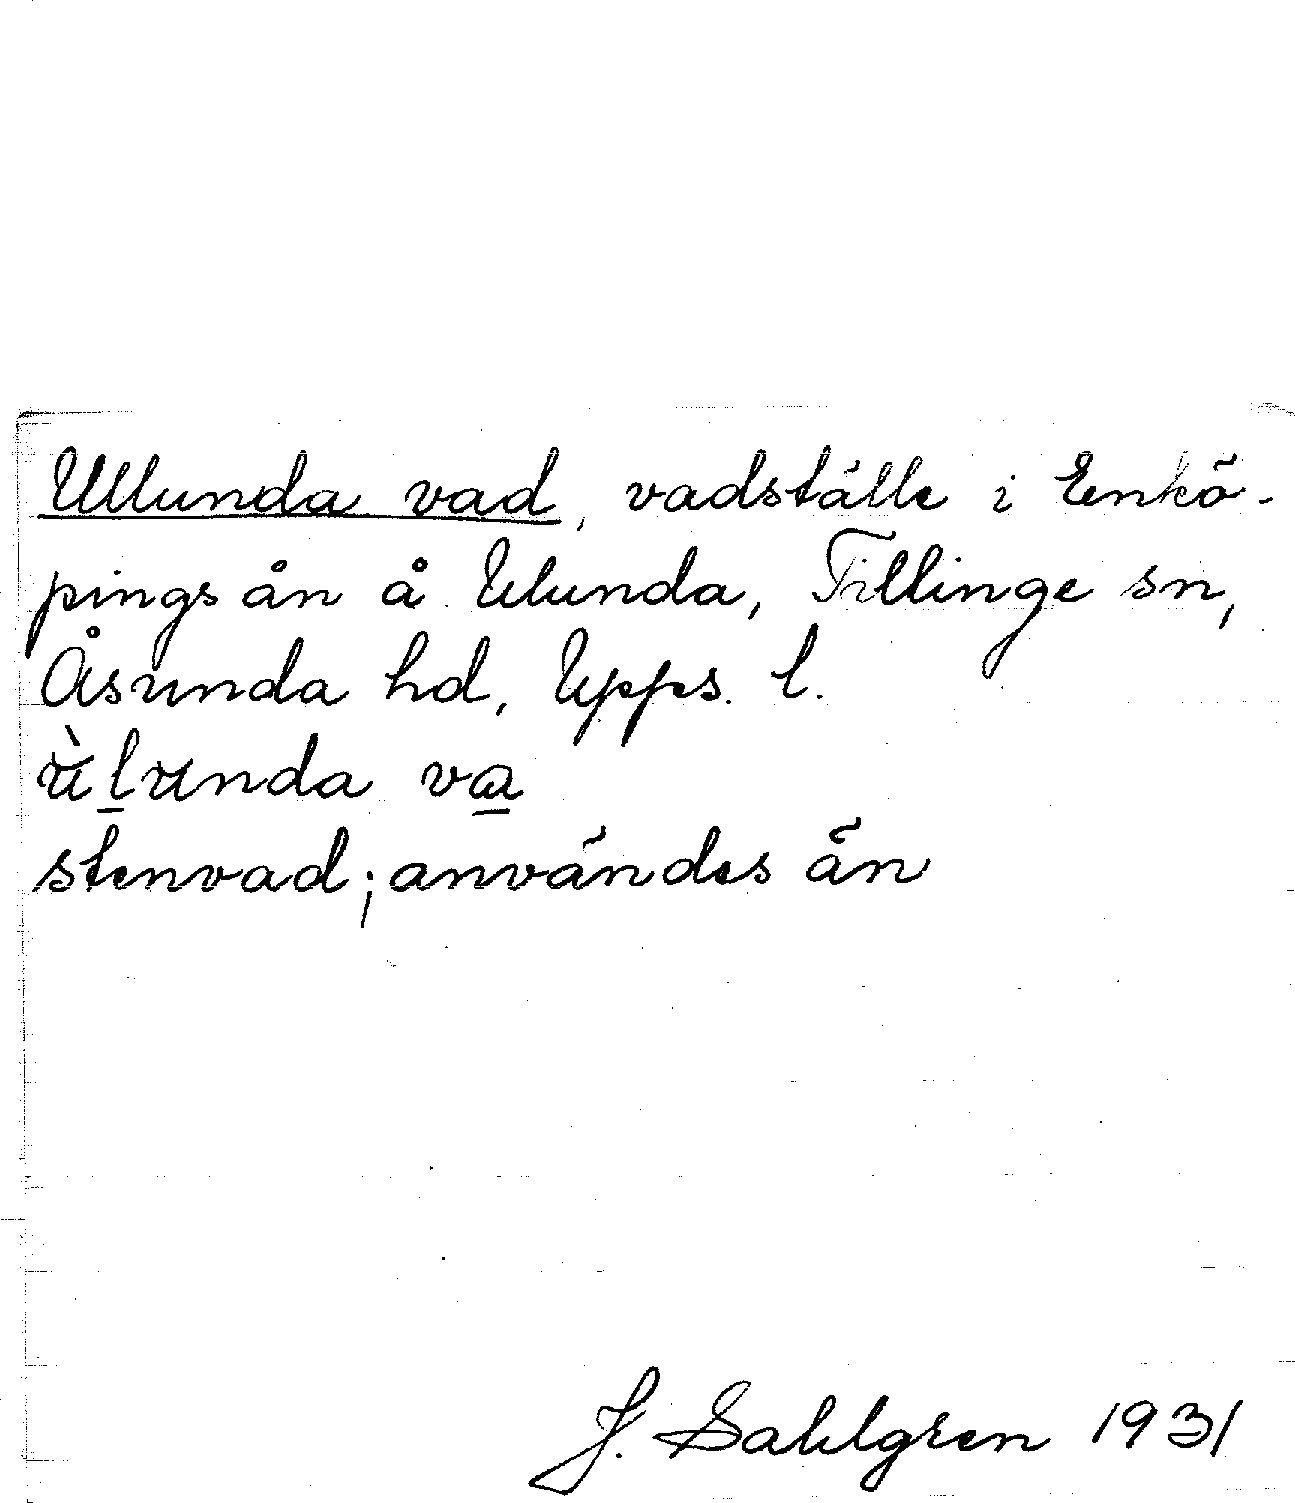 Ullunda vad, vadställe i Enkö-
pingsån å Ulunda, Tillinge sn,
Åsunda hd, Upps. l.
ùlunda va
stenvad; användes än
J. Sahlgren 1931